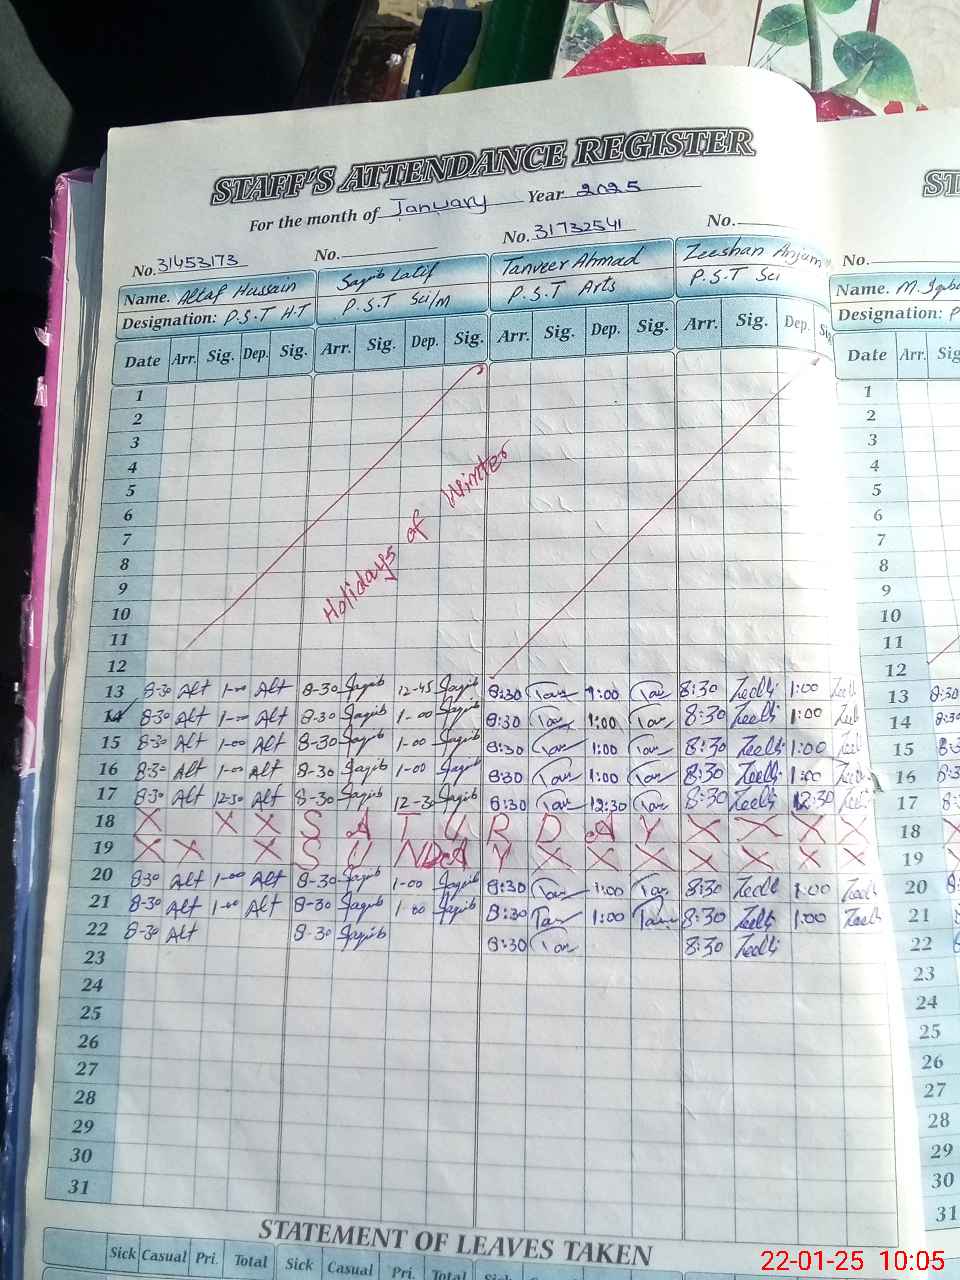 STAFF'S ATTENDANCE REGISTER
For the month of January Year 2025
No. 31453173 No. No. 31732541 No. No.
Name. Altaf Hussain Saqib Latif Tanveer Ahmad Zeeshan Anjum Name. M. Iqba
Designation: P.S.T H.T P.S.T Sci/M P.S.T Arts P.S.T Sci Designation: P
Date Arr. Sig. Dep. Sig. Arr. Sig. Dep. Sig. Arr. Sig. Dep. Sig. Arr. Sig. Dep. Si Date Arr. Sig
1 1
2 2
3 3
4 4
5 5
6 6
7 7
8 8
9 9
10 10
11 11
12 12
Holidays of Winter
13 8-30 Alt 1-00 Alt 8-30 Saqib 12-45 Saqib 8:30 Tan 1:00 Tan 8:30 Zeeshi 1:00 13 8:30
14 8-30 Alt 1-00 Alt 8-30 Saqib 1-00 Saqib 8:30 Tan 1:00 Tan 8:30 1:00 14 8:30
15 8-30 Alt 1-00 Alt 8-30 Saqib 1-00 Saqib 8:30 Tan 1:00 Tan 8:30 1:00 15
16 8-30 Alt 1-00 Alt 8-30 Saqib 1-00 Saqib 8:30 Tan 1:00 Tan 8:30 1:00 16
17 8-30 Alt 12-30 Alt 8-30 Saqib 12-30 Saqib 8:30 Tan 12:30 Tan 8:30 12:30 17
18 X X X S A T U R D A Y X X X X 18
19 X X X S U N D A Y X X X X X X X 19
20 8-30 Alt 1-00 Alt 8-30 Saqib 1-00 Saqib 8:30 Tan 1:00 Tan 8:30 1:00 20
21 8-30 Alt 1-00 Alt 8-30 Saqib 1-00 Saqib 8:30 Tan 1:00 Tan 8:30 1:00 21
22 8-30 Alt 8-30 Saqib 8:30 Tan 8:30 22
23 23
24 24
25 25
26 26
27 27
28 28
29 29
30 30
31 31
STATEMENT OF LEAVES TAKEN
Sick Casual Pri. Total Sick Casual Pri. Total
22-01-25 10:05